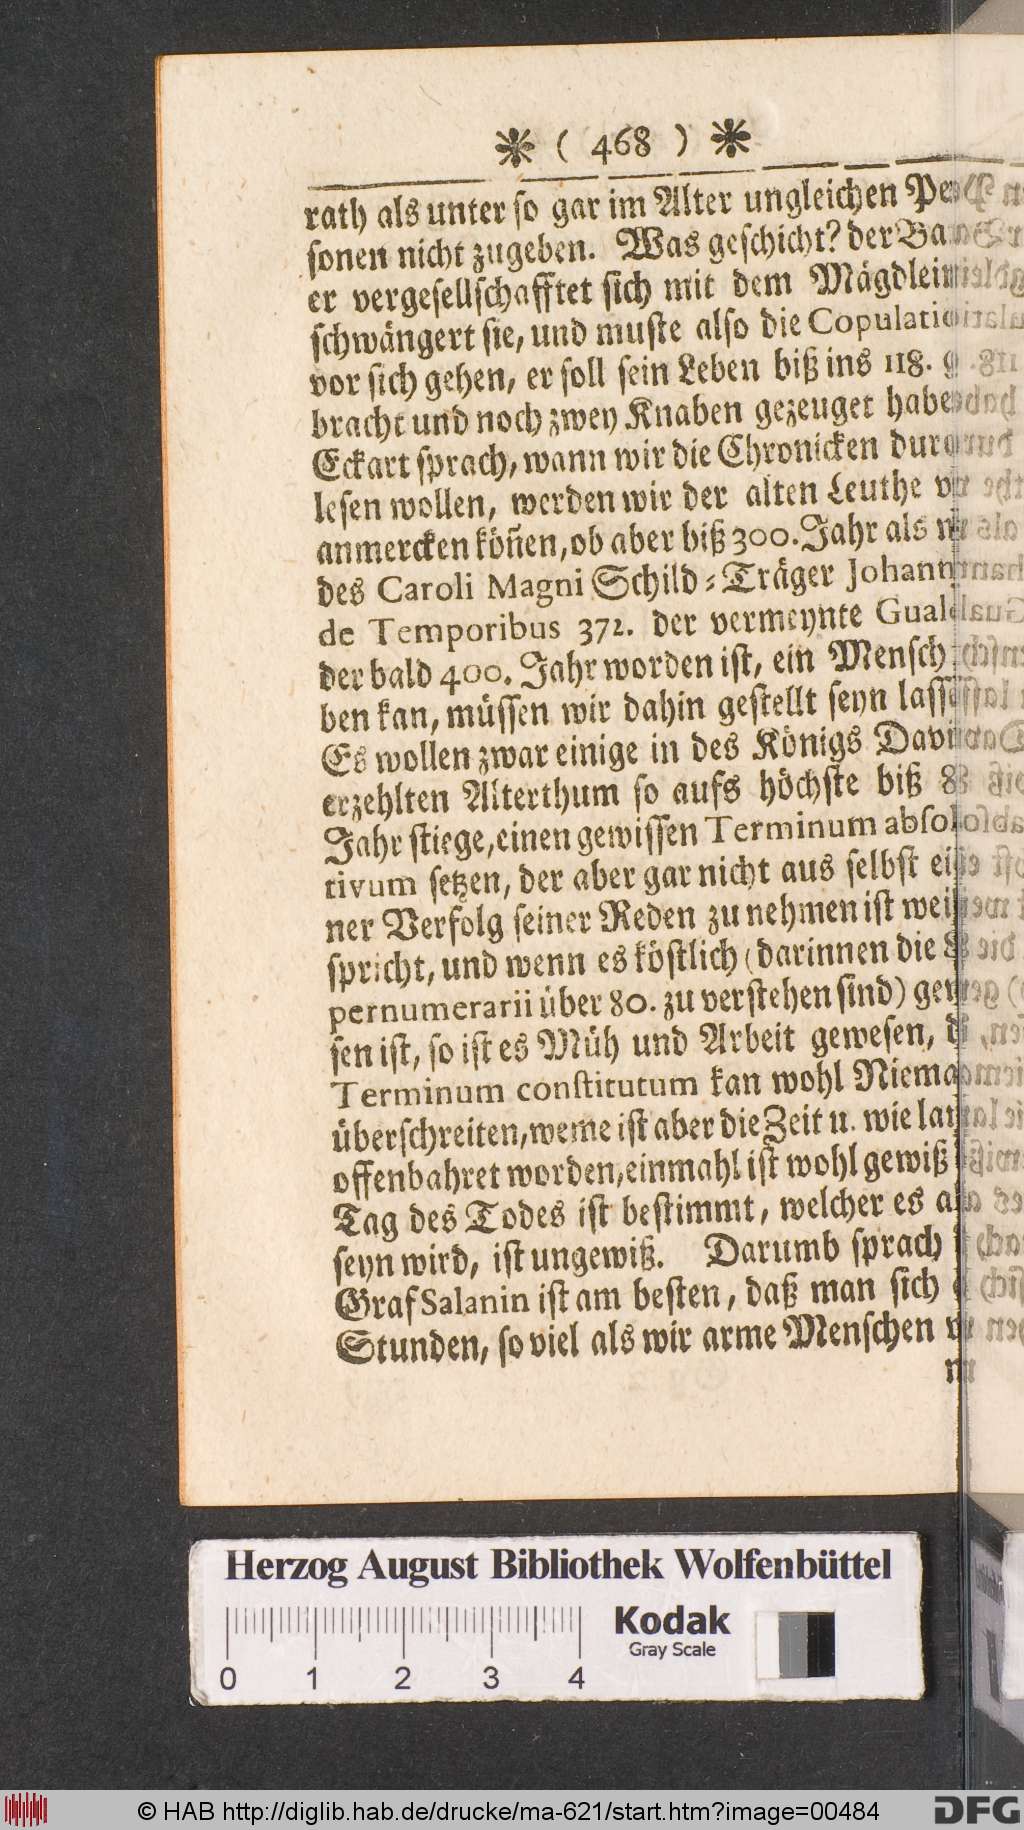 ❋ ( 468 ) ❋
rath als unter so gar im Alter ungleichen Pe
sonen nicht zugeben. Was geschicht? der Ba
er vergesellschafftet sich mit dem Mägdlein
schwängert sie, und muste also die Copulatio
vor sich gehen, er soll sein Leben biß ins 118. g
bracht und noch zwey Knaben gezeuget habe
Eckart sprach, wann wir die Chronicken durc
lesen wollen, werden wir der alten Leuthe v
anmercken köñen, ob aber biß 300. Jahr als
des Caroli Magni Schild-Träger Johann
de Temporibus 372. der vermeynte Gual
der bald 400. Jahr worden ist, ein Mensch
ben kan, müssen wir dahin gestellt seyn lasse
Es wollen zwar einige in des Königs Davi
erzehlten Alterthum so aufs höchste biß 8
Jahr stiege, einen gewissen Terminum absol
tivum setzen, der aber gar nicht aus selbst ei
ner Verfolg seiner Reden zu nehmen ist wei
spricht, und wenn es köstlich (darinnen die
pernumerarii über 80. zu verstehen sind) gew
sen ist, so ist es Müh und Arbeit gewesen, d
Terminum constitutum kan wohl Niema
überschreiten, weme ist aber die Zeit u. wie lan
offenbahret worden, einmahl ist wohl gewiß
Tag des Todes ist bestimmt, welcher es a
seyn wird, ist ungewiß. Darumb sprach
Graf Salanin ist am besten, daß man sich
Stunden, so viel als wir arme Menschen
Herzog August Bibliothek Wolfenbüttel
Kodak
Gray Scale
0 1 2 3 4
© HAB http://diglib.hab.de/drucke/ma-621/start.htm?image=00484
DFG